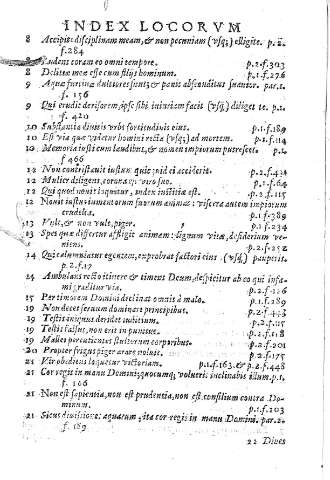 INDEX LOCORVM
8 Accipite disciplinam meam, & non pecuniam (vsq;) elligite. p.2.
f.284
8 Ludens coram eo omni tempore. p.2.f.303
8 Delitiæ meæ esse cum filijs hominum. p.1.f.276
9 Aquæ furtiuæ dulciores sunt, & panis absconditus suauior. par.1.
f. 156
9 Qui erudit derisorem, ipse sibi iniuriam facit (vsq;) diliget te. p.1.
f. 420
10 Substantia diuitis vrbs fortitudinis eius. p.1.f.189
10 Est via quæ videtur homini recta (vsq;) ad mortem. p.1.f.114
10 Memoria iusti cum laudibus, & nomen impiorum putrescet. p.1.
f 466
12 Non contristabit iustum quicquid ei acciderit. p.2.f.432
12 Mulier diligens, corona est viro suo. p.1.f.64
12 Qui quod nouit loquitur, index iustitiæ est. p.2.f.115
12 Nouit iustus iumentorum suorum animas: viscera autem impiorum
crudelia. p.1.f.389
13 Vult, & non vult, piger. p.1.f.234
13 Spes quæ differtur affligit animam: lignum vitæ, desiderium ve-
niens. p.2.f.252
14 Qui calumniatur egentem, exprobrat factori eius (vsq;) pauperis.
p.2.f.17
14 Ambulans recto itinere & timens Deum, despicitur ab eo qui infa-
mi graditur via. p.2.f.226
15 Per timorem Domini declinat omnis à malo. p.1.f.289
19 Non decet seruum dominare principibus. p.2.f.423
19 Testis iniquus deridet iudicium. p.2.f.243
19 Testis falsus, non erit impunitus. p.2.f.118
19 Mallei percutientes stultorum corporibus. p.2.f.201
20 Propter frigus piger arare noluit. p.2.f.175
21 Vir obediens loquetur victoriam. p.1.f.163. & p.2.f.448
21 Cor regis in manu Domini; quocumq; voluerit inclinabit illum. p.1.
f. 106
21 Non est sapientia, non est prudentia, non est consilium contra Do-
minum. p.1.f.203
21 Sicut diuisiones aquarum, ita cor regis in manu Domini. par.2.
f. 189
22 Diues